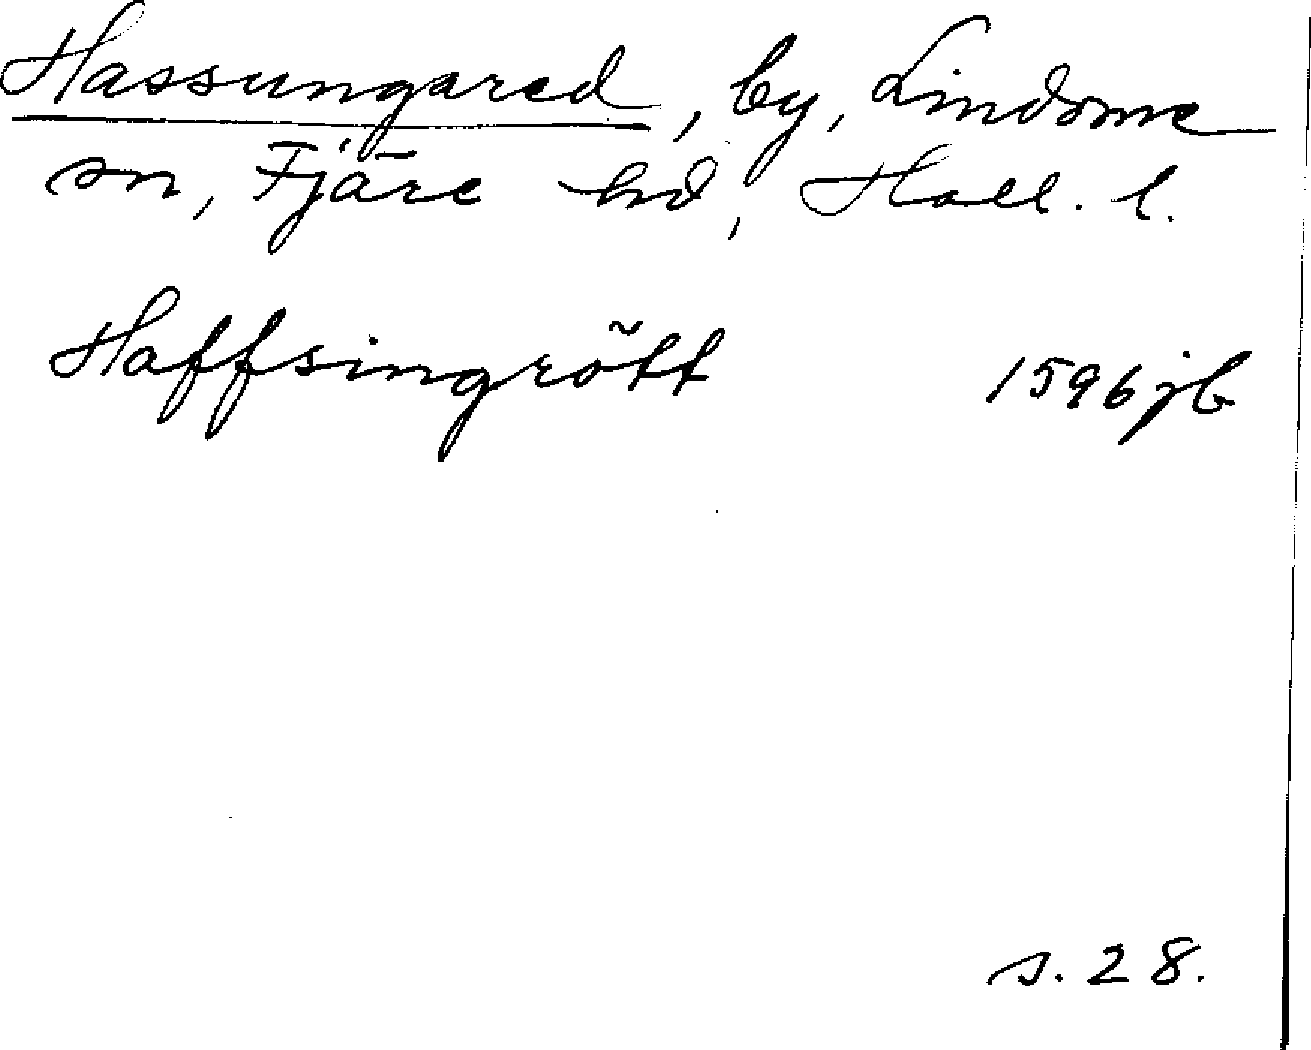 Hassungared, by, Lindome
sn, Fjäre hd, Hall. l.
Haffsingrött 1596 jb
s. 28.